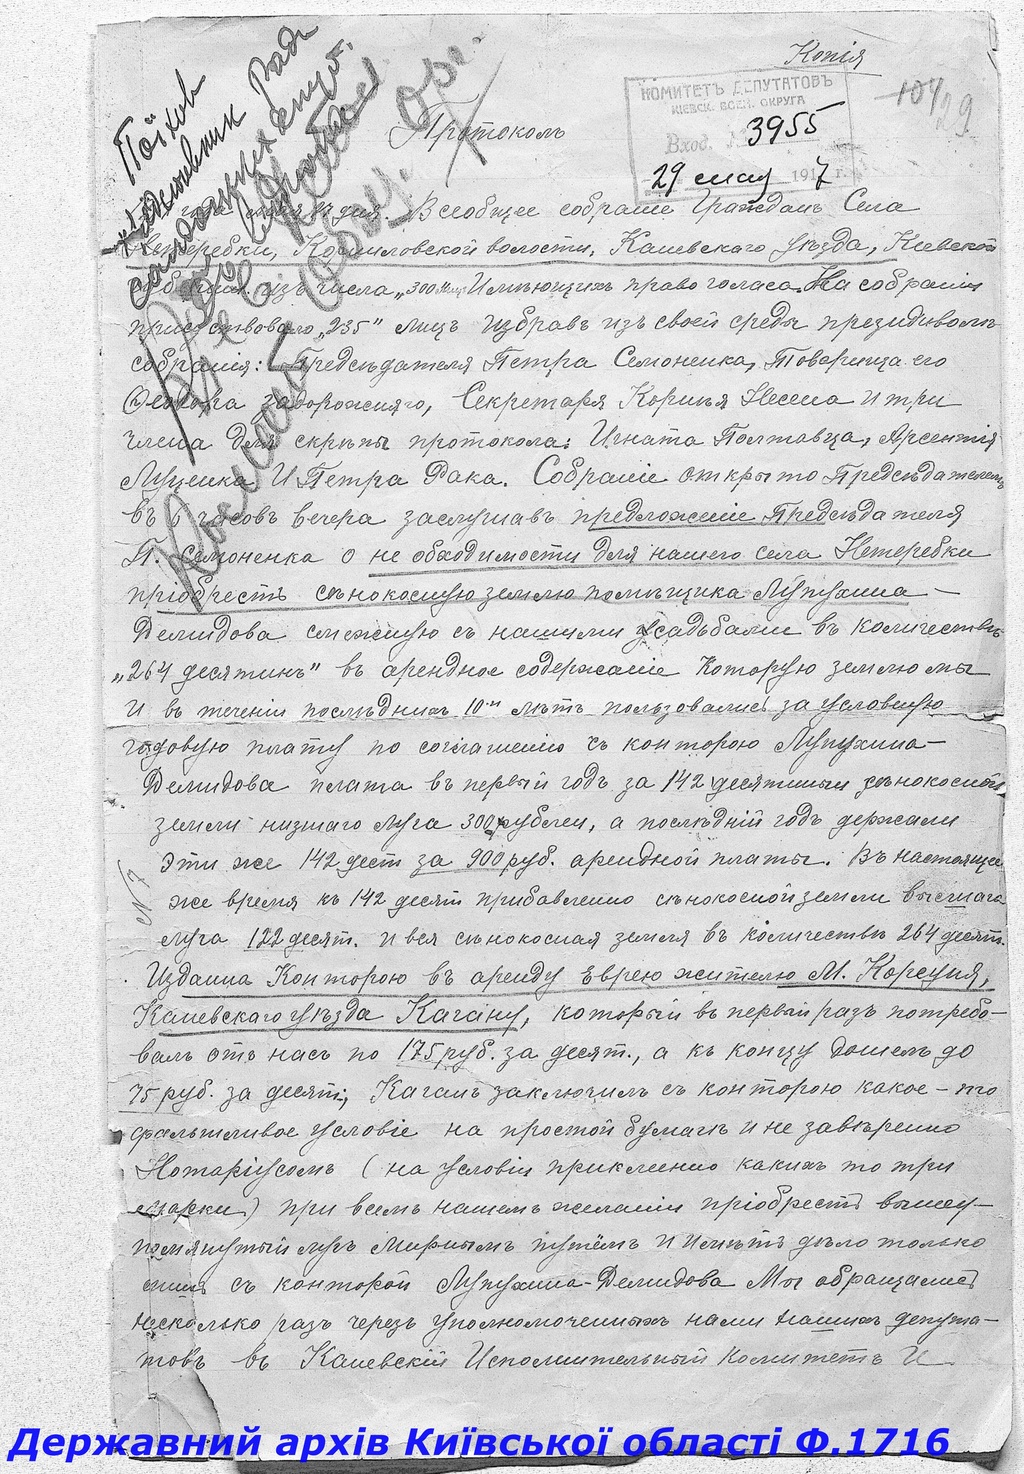 Копія
КОМИТЕТЪ ДЕПУТАТОВЪ
КІЕВСК. ВОЕН. ОКРУГА
Вход. 3955
29 мая 1917 г.
104
29
Протоколъ
Поїхов
дня. Всеобщее собраніе Гражданъ Села
Нетеребки, Корниловской волости, Каневскаго уѣзда, Кіевской
изъ числа „300" Имѣющихъ право голоса. На собраніи
присутствовало „235" лицъ избравъ изъ своей среды президіумъ
собранія: Предсѣдателя Петра Семоненка, Товарища его
Ѳеодора Задорожняго, Секретаря Корнѣя Несена и три
члена для скрѣпы протокола: Игната Полтавца, Арсентія
Луценка И Петра Рака. Собраніе открыто Предсѣдателемъ
въ 6 часовъ вечера заслушавъ предложеніе Предсѣдателя
П. Семоненка о не обходимости для нашего села Нетеребки
пріобресть сѣнокосную землю помѣщика Лупухина-
Демидова смежную съ нашими усадьбами въ количествѣ
„264 десятинъ" въ арендное содержаніе Которую землю мы
И въ теченіи послѣднихъ 10ти лѣтъ пользовались за условную
годовую плату по соглашенію съ конторою Лупухина-
Демидова плата въ первый годъ за 142 десятины сѣнокосной
земли низшаго луга 300 рублей, а послѣдній годъ держали
эти же 142 десят за 900 руб. арендной платы. Въ настоящее
же время къ 142 десят прибавленно сѣнокосной земли высшаго
луга 122 десят. и вся сѣнокосная земля въ количествѣ 264 десят.
Издана Конторою въ аренду Еврею жителю М. Корсуня,
Каневскаго уѣзда Кагану, который въ первый разъ потребо-
валъ отъ насъ по 175 руб. за десят., а къ концу дошелъ до
75 руб. за десят; Каганъ заключилъ съ конторою какое-то
фальшливое условіе на простой бумагѣ и не завѣренно
Нотаріусомъ (на условіи приклеенно какихъ то три
марки) при всемъ нашемъ желаніи пріобресть вышеу-
помянутый лугъ Мирнымъ путёмъ И имѣть дѣло только
лишь съ конторой Лупухина-Демидова Мы обращались
несколько разъ черезъ уполномоченныхъ нами нашихъ депута-
товъ въ Каневскій Исполнительный Комитетъ И
Державний архів Київської області Ф.1716